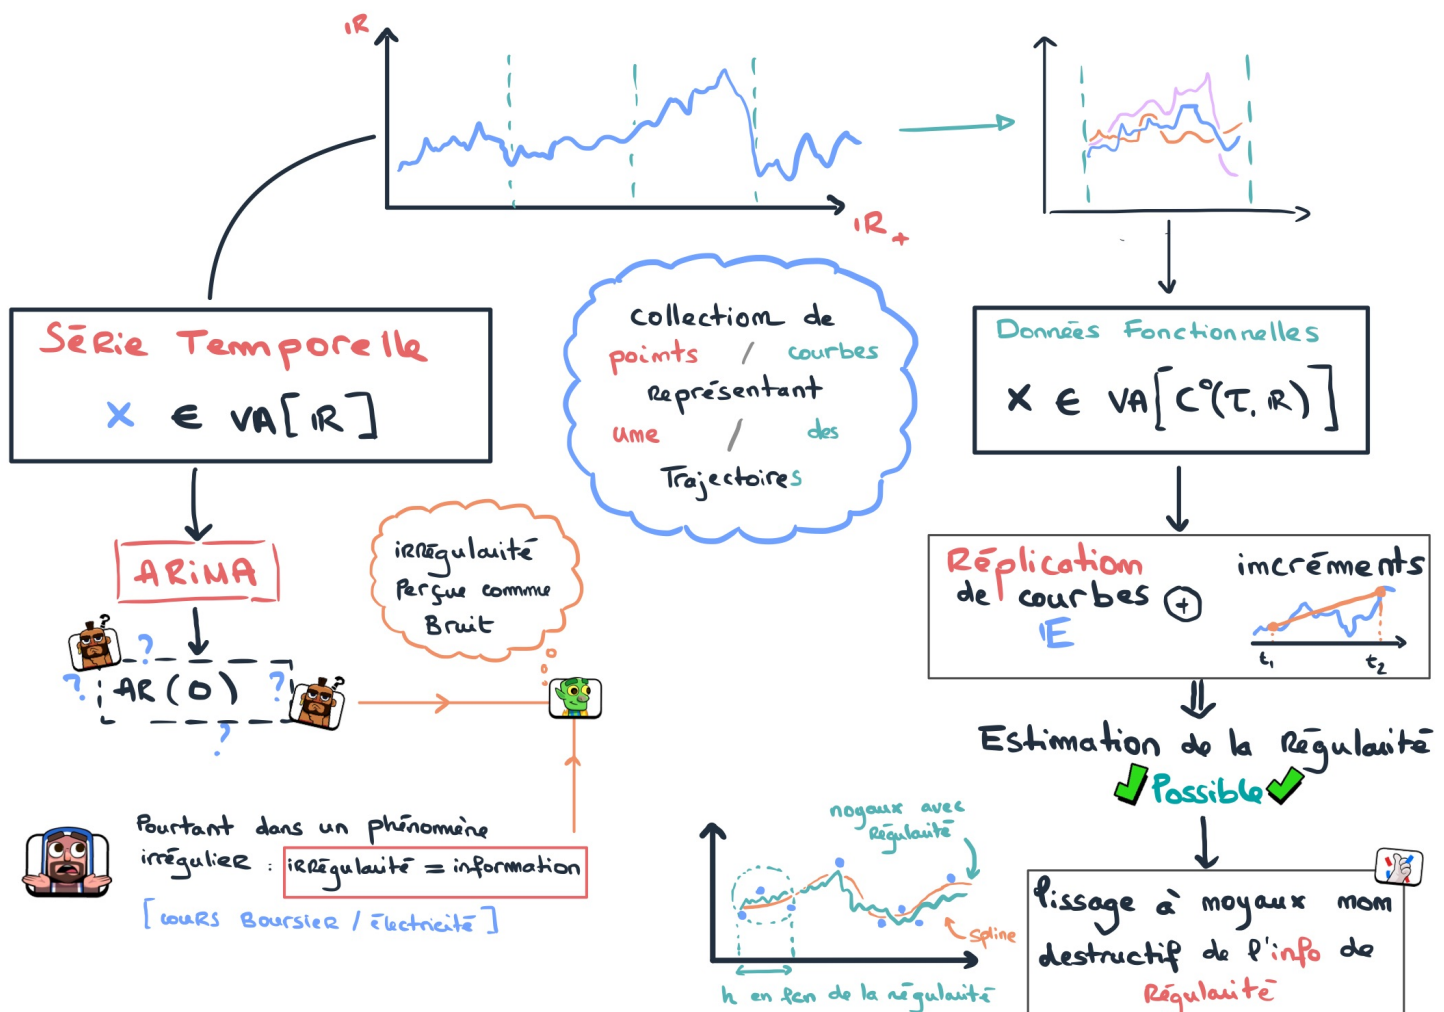 IR
IR +
Série Temporelle
X ∈ VA[IR]
collection de
points / courbes
Représentant
une / des
Trajectoires
Données Fonctionnelles
X ∈ VA[C°(T, IR)]
ARIMA
AR(0)
?
?
?
?
?
?
irrégularité
Perçue comme
Bruit
Réplication
de courbes
IE
+
incréments
t₁
t₂
Estimation de la Régularité
Possible
Pourtant dans un phénomène
irrégulier : irrégularité = information
[cours Boursier / électricité]
noyaux avec
Régularité
spline
h en fcn de la régularité
lissage à noyaux non
destructif de l'info de
Régularité